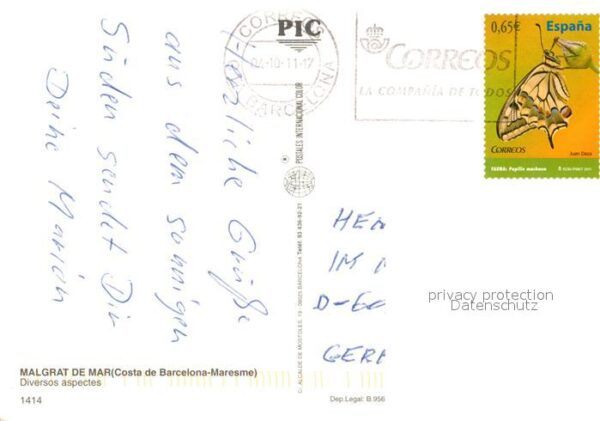 Herzliche Grüße
aus dem sonnigen
Süden sendet Dir
Deine Marion
PIC
CORREOS
04-10-11-17
BARCELONA
CORREOS
LA COMPAÑÍA DE TODOS
0,65€ España
CORREOS
FAUNA: Papilio machaon
POSTALES INTERNACIONAL COLOR
C/. ALCALDE DE MOSTOLES, 19 - 08025 BARCELONA Teléf. 93 436-92-21
HE
IM
D-
GER
privacy protection
Datenschutz
MALGRAT DE MAR(Costa de Barcelona-Maresme)
Diversos aspectes
1414
Dep.Legal: B.956